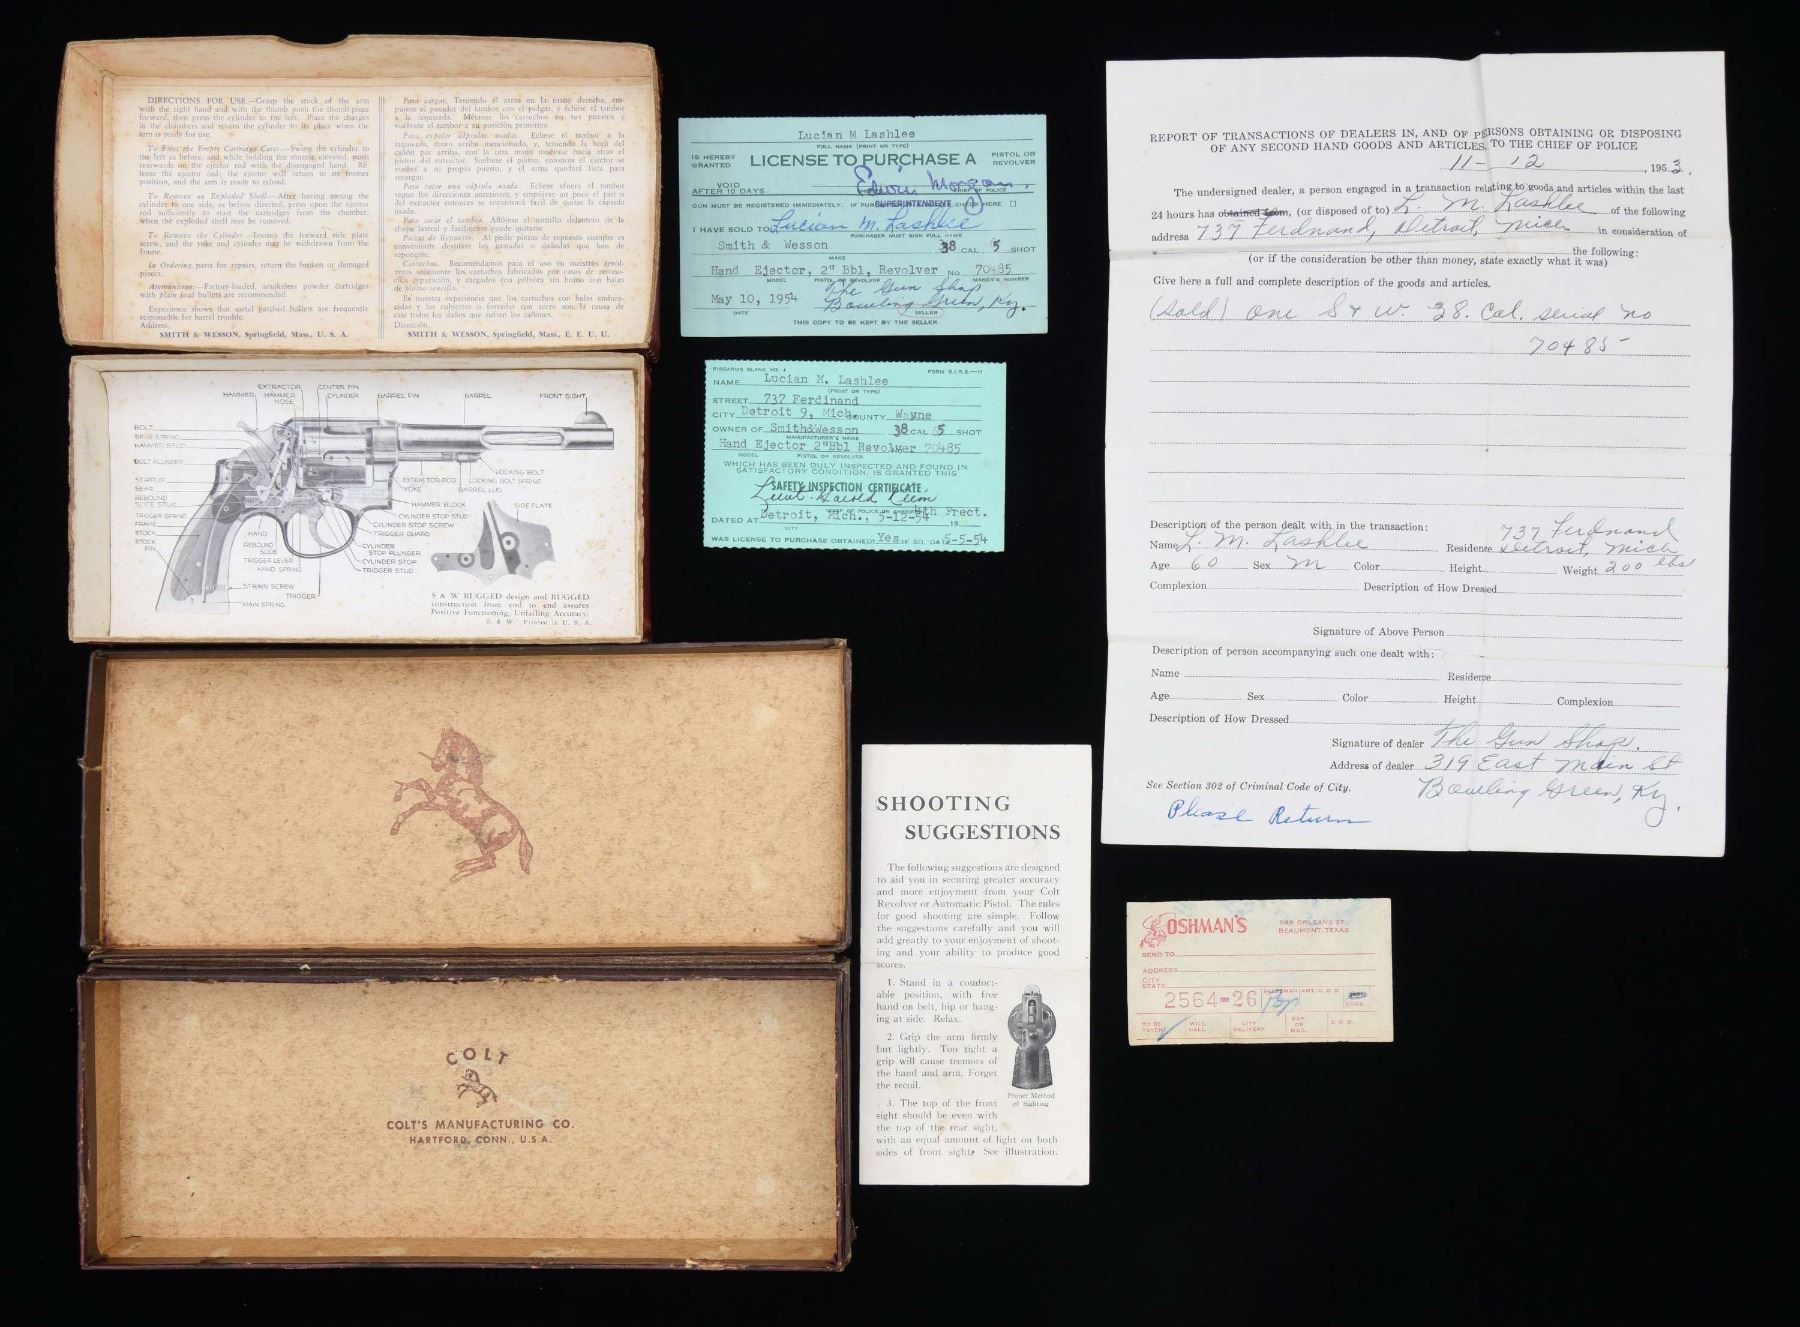 DIRECTIONS FOR USE.—Grasp the stock of the arm
with the right hand and with the thumb push the thumb-piece
forward, then press the cylinder to the left. Place the charges
in the chambers and return the cylinder to its place when the
arm is ready for use.
To Eject the Empty Cartridge Cases.—Swing the cylinder to
the left as before, and while holding the muzzle elevated, push
rearwards on the ejector rod with the disengaged hand. Re-
lease the ejector rod; the ejector will return to its former
position, and the arm is ready to reload.
To Remove an Exploded Shell.—After having swung the
cylinder to one side, as before directed, press upon the ejector
rod sufficiently to start the cartridges from the chamber,
when the exploded shell may be removed.
To Remove the Cylinder.—Loosen the forward side plate
screw, and the yoke and cylinder may be withdrawn from the
frame.
In Ordering parts for repairs, return the broken or damaged
pieces.
Ammunition.—Factory-loaded, smokeless powder cartridges
with plain lead bullets are recommended.
Experience shows that metal patched bullets are frequently
responsible for barrel trouble.
Address,
SMITH & WESSON, Springfield, Mass., U. S. A.
Para cargar. Teniendo el arma en la mano derecha, em-
pújese el pasador del tambor con el pulgar, y échese el tambor
a la izquierda. Métanse los cartuchos en sus puestos y
vuélvase el tambor a su posición primitiva.
Para expeler cápsulas usadas. Échese el tambor a la
izquierda, como arriba mencionado, y, teniendo la boca del
cañón por arriba, con la otra mano muévase hacia atras el
piston del extractor. Sueltese el piston, entonces el ejector se
vuelve a su propio puesto, y el arma quedará lista para
recargar.
Para sacar una cápsula usada. Echese afuera el tambor
según los direcciones anteriores, y empújese un poco el piston
del extractor entonces se encontrará facil de quitar la cápsula
usada.
Para sacar el tambor. Aflójese el tornillo delantero de la
chapa lateral y facilmente puede quitarse.
Piezas de Repuesto. Al pedir piezas de repuesto siempre es
conveniente devolver las gastadas o dañadas que han de
reponerse.
Cartuchos. Recomendamos para el uso en nuestros revol-
veres solamente los cartuchos fabricados por casas de recono-
cida reputación, y cargados con pólvora sin humo con balas
de plomo sencillo.
Es nuestra experiencia que los cartuchos con balas endure-
cidas y las cubiertas o forradas con acero son la causa de
casi todos los daños que sufren los cañones.
Dirección,
SMITH & WESSON, Springfield, Mass., E. E. U. U.
EXTRACTOR
CENTER PIN
HAMMER
HAMMER NOSE
CYLINDER
BARREL PIN
BARREL
FRONT SIGHT
BOLT
SEAR SPRING
HAMMER STUD
BOLT PLUNGER
STIRRUP
SEAR
REBOUND SLIDE STUD
TRIGGER SPRING
FRAME
STOCK
STOCK PIN
HAND
REBOUND SLIDE
TRIGGER LEVER
HAND SPRING
STRAIN SCREW
TRIGGER
MAIN SPRING
LOCKING BOLT
EXTRACTOR ROD
LOCKING BOLT SPRING
YOKE
BARREL LUG
HAMMER BLOCK
SIDE PLATE
CYLINDER STOP STUD
CYLINDER STOP SCREW
TRIGGER GUARD
CYLINDER STOP PLUNGER
CYLINDER STOP
TRIGGER STUD
S & W RUGGED design and RUGGED
construction from end to end assures
Positive Functioning, Unfailing Accuracy.
S. & W. Printed in U. S. A.
COLT
COLT'S MANUFACTURING CO.
HARTFORD, CONN., U.S.A.
Lucian M Lashlee
FULL NAME (PRINT OR TYPE)
IS HEREBY GRANTED LICENSE TO PURCHASE A PISTOL OR REVOLVER
VOID AFTER 10 DAYS Edwin Morgan. CHIEF OF POLICE
SUPERINTENDENT
GUN MUST BE REGISTERED IMMEDIATELY. IF PURCHASED CHECK HERE
I HAVE SOLD TO Lucian M. Lashlee
PURCHASER MUST SIGN FULL NAME
Smith & Wesson 38 CAL 5 SHOT
MAKE
Hand Ejector, 2" Bbl, Revolver No 70485
MODEL PISTOL OR REVOLVER MAKER'S NUMBER
May 10, 1954 The Gun Shop
Bowling Green, Ky.
DATE SELLER
THIS COPY TO BE KEPT BY THE SELLER
FIREARMS BLANK NO. 4 FORM
NAME Lucian M. Lashlee
(PRINT OR TYPE)
STREET 737 Ferdinand
CITY Detroit 9, Mich. COUNTY Wayne
OWNER OF Smith&Wesson 38 CAL 5 SHOT
MANUFACTURER'S NAME
Hand Ejector 2"Bbl Revolver 70485
MODEL PISTOL OR REVOLVER
WHICH HAS BEEN DULY INSPECTED AND FOUND IN
SATISFACTORY CONDITION, IS GRANTED THIS
SAFETY INSPECTION CERTIFICATE
Lieut. Harold
DATED AT Detroit, Mich., 5-12-54 Prect.
CITY
WAS LICENSE TO PURCHASE OBTAINED? Yes IF SO, DATE 5-5-54
SHOOTING
SUGGESTIONS
The following suggestions are designed
to aid you in securing greater accuracy
and more enjoyment from your Colt
Revolver or Automatic Pistol. The rules
for good shooting are simple. Follow
the suggestions carefully and you will
add greatly to your enjoyment of shoot-
ing and your ability to produce good
scores.
1. Stand in a comfort-
able position, with free
hand on belt, hip or hang-
ing at side. Relax.
2. Grip the arm firmly
but lightly. Too tight a
grip will cause tremors of
the hand and arm. Forget
the recoil.
3. The top of the front
sight should be even with
the top of the rear sight,
with an equal amount of light on both
sides of front sight. See illustration.
Proper Method
of Sighting
REPORT OF TRANSACTIONS OF DEALERS IN, AND OF PERSONS OBTAINING OR DISPOSING
OF ANY SECOND HAND GOODS AND ARTICLES, TO THE CHIEF OF POLICE
11-12, 1953.
The undersigned dealer, a person engaged in a transaction relating to goods and articles within the last
24 hours has obtained from, (or disposed of to) L. M. Lashlee of the following
address 737 Ferdnand, Detroit, Mich in consideration of
the following:
(or if the consideration be other than money, state exactly what it was)
Give here a full and complete description of the goods and articles.
(Sold) One S & W. 38. Cal. serial no
70485
Description of the person dealt with in the transaction:
737 Ferdnand
Name L. M. Lashlee Residence Detroit, Mich
Age 60 Sex M Color Height Weight 200 lbs
Complexion Description of How Dressed
Signature of Above Person
Description of person accompanying such one dealt with:
Name Residence
Age Sex Color Height Complexion
Description of How Dressed
Signature of dealer The Gun Shop.
Address of dealer 319 East Main St
See Section 302 of Criminal Code of City. Bowling Green, Ky.
Please Return
OSHMAN'S
ORLEANS ST.
BEAUMONT, TEXAS
SEND TO
ADDRESS
CITY
STATE
2564-26
SALESMAN AMT. C.O.D.
TO BE TAKEN WILL CALL CITY DELIVERY EXP. OR MAIL C.O.D.